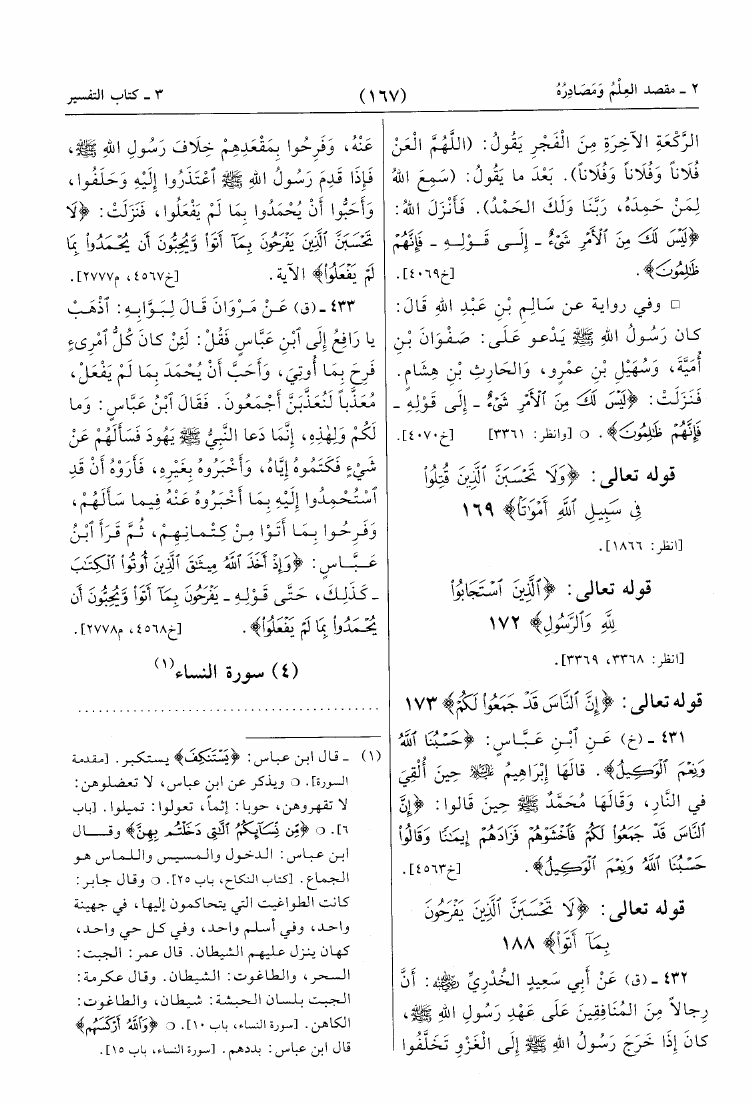 ٢ ـ مقصد العِلْمُ وَمَصَادِرُهُ
(١٦٧)
٣ ـ كتاب التفسير
الرَّكْعَةِ الآخِرَةِ مِنَ الْفَجْرِ يَقُولُ: (اللَّهُمَّ الْعَنْ
فُلَاناً وَفُلَاناً وَفُلَاناً). بَعْدَ ما يَقُولُ: (سَمِعَ اللهُ
لِمَنْ حَمِدَهُ، رَبَّنَا وَلَكَ الحَمْدُ). فَأَنْزَلَ اللهُ:
﴿لَيْسَ لَكَ مِنَ ٱلْأَمْرِ شَىْءٌ ـ إِلَى قَوْلِهِ ـ فَإِنَّهُمْ
ظَٰلِمُونَ﴾. [خ٤٠٦٩].
□ وفي رواية عن سَالِمِ بْنِ عَبْدِ اللهِ قَالَ:
كان رَسُولُ اللهِ ﷺ يَدْعو عَلَى: صَفْوَانَ بْنِ
أُمَيَّةَ، وَسُهَيْلِ بْنِ عمْرٍو، وَالحَارِثِ بْنِ هِشَامٍ.
فَنَزَلَتْ: ﴿لَيْسَ لَكَ مِنَ ٱلْأَمْرِ شَىْءٌ ـ إِلَى قَوْلِهِ ـ
فَإِنَّهُمْ ظَٰلِمُونَ﴾. ○ [وانظر: ٣٣٦١] [خ٤٠٧٠].
قوله تعالى: ﴿وَلَا تَحْسَبَنَّ ٱلَّذِينَ قُتِلُوا۟
فِى سَبِيلِ ٱللَّهِ أَمْوَٰتًۢا﴾ ١٦٩
[انظر: ١٨٦٦].
قوله تعالى: ﴿ٱلَّذِينَ ٱسْتَجَابُوا۟
لِلَّهِ وَٱلرَّسُولِ﴾ ١٧٢
[انظر: ٣٣٦٨، ٣٣٦٩].
قوله تعالى: ﴿إِنَّ ٱلنَّاسَ قَدْ جَمَعُوا۟ لَكُمْ﴾ ١٧٣
٤٣١ ـ (خ) عَنِ ٱبْنِ عَبَّاسٍ: ﴿حَسْبُنَا ٱللَّهُ
وَنِعْمَ ٱلْوَكِيلُ﴾. قالَهَا إِبْرَاهِيمُ ﷺ حِينَ أُلْقِيَ
في النَّارِ، وَقَالَهَا مُحَمَّدٌ ﷺ حِينَ قالُوا: ﴿إِنَّ
ٱلنَّاسَ قَدْ جَمَعُوا۟ لَكُمْ فَٱخْشَوْهُمْ فَزَادَهُمْ إِيمَٰنًا وَقَالُوا۟
حَسْبُنَا ٱللَّهُ وَنِعْمَ ٱلْوَكِيلُ﴾. [خ٤٥٦٣].
قوله تعالى: ﴿لَا تَحْسَبَنَّ ٱلَّذِينَ يَفْرَحُونَ
بِمَآ أَتَوا۟﴾ ١٨٨
٤٣٢ ـ (ق) عَنْ أَبِي سَعِيدٍ الخُدْرِيِّ ﷺ: أَنَّ
رِجالاً مِنَ المُنَافِقِينَ عَلَى عَهْدِ رَسُولِ اللهِ ﷺ،
كانَ إِذَا خَرَجَ رَسُولُ اللهِ ﷺ إِلَى الْغَزْوِ تَخَلَّفُوا
عَنْهُ، وَفَرِحُوا بِمَقْعَدِهِمْ خِلَافَ رَسُولِ اللهِ ﷺ،
فَإِذَا قَدِمَ رَسُولُ اللهِ ﷺ ٱعْتَذَرُوا إِلَيْهِ وَحَلَفُوا،
وَأَحَبُّوا أَنْ يُحْمَدُوا بِمَا لَمْ يَفْعَلُوا، فَنَزَلَتْ: ﴿لَا
تَحْسَبَنَّ ٱلَّذِينَ يَفْرَحُونَ بِمَآ أَتَوا۟ وَّيُحِبُّونَ أَن يُحْمَدُوا۟ بِمَا
لَمْ يَفْعَلُوا۟﴾ الآية. [خ٤٥٦٧، م٢٧٧٧].
٤٣٣ ـ (ق) عَنْ مَرْوَانَ قَالَ لِبَوَّابِهِ: ٱذْهَبْ
يا رَافِعُ إِلَى ٱبْنِ عَبَّاسٍ فَقُلْ: لَئِنْ كانَ كُلُّ ٱمْرِىءٍ
فَرِحَ بِمَا أُوتِيَ، وَأَحَبَّ أَنْ يُحْمَدَ بِمَا لَمْ يَفْعَلْ،
مُعَذَّباً لَنُعَذَّبَنَّ أَجْمَعُونَ. فَقَالَ ٱبْنُ عَبَّاسٍ: وَما
لَكُمْ وَلِهٰذِهِ، إِنَّمَا دَعا النَّبِيُّ ﷺ يَهُودَ فَسَأَلَهُمْ عَنْ
شَيْءٍ فَكَتَمُوهُ إِيَّاهُ، وَأَخْبَرُوهُ بِغَيْرِهِ، فَأَرَوْهُ أَنْ قَدِ
ٱسْتَحْمَدُوا إِلَيْهِ بِمَا أَخْبَرُوهُ عَنْهُ فِيما سَأَلَهُمْ،
وَفَرِحُوا بِمَا أَتَوْا مِنْ كِتْمَانِهِمْ، ثُمَّ قَرَأَ ٱبْنُ
عَبَّاسٍ: ﴿وَإِذْ أَخَذَ ٱللَّهُ مِيثَٰقَ ٱلَّذِينَ أُوتُوا۟ ٱلْكِتَٰبَ
ـ كَذَلِكَ، حَتَّى قَوْلِهِ ـ يَفْرَحُونَ بِمَآ أَتَوا۟ وَّيُحِبُّونَ أَن
يُحْمَدُوا۟ بِمَا لَمْ يَفْعَلُوا۟﴾. [خ٤٥٦٨، م٢٧٧٨].
(٤) سورة النساء(١)
........................................
(١) ـ قال ابن عباس: ﴿يَسْتَنكِفَ﴾ يستكبر. [مقدمة
السورة]. ○ ويذكر عن ابن عباس، لا تعضلوهن:
لا تقهروهن، حوبا: إثماً، تعولوا: تميلوا. [باب
٦]. ○ ﴿مِّن نِّسَآئِكُمُ ٱلَّٰتِى دَخَلْتُم بِهِنَّ﴾ وقال
ابن عباس: الدخول والمسيس واللماس هو
الجماع. [كتاب النكاح، باب ٢٥]. ○ وقال جابر:
كانت الطواغيت التي يتحاكمون إليها، في جهينة
واحد، وفي أسلم واحد، وفي كل حي واحد،
كهان ينزل عليهم الشيطان. قال عمر: الجبت:
السحر، والطاغوت: الشيطان. وقال عكرمة:
الجبت بلسان الحبشة: شيطان، والطاغوت:
الكاهن. [سورة النساء، باب ١٠]. ○ ﴿وَٱللَّهُ أَرْكَسَهُم﴾
قال ابن عباس: بددهم. [سورة النساء، باب ١٥].